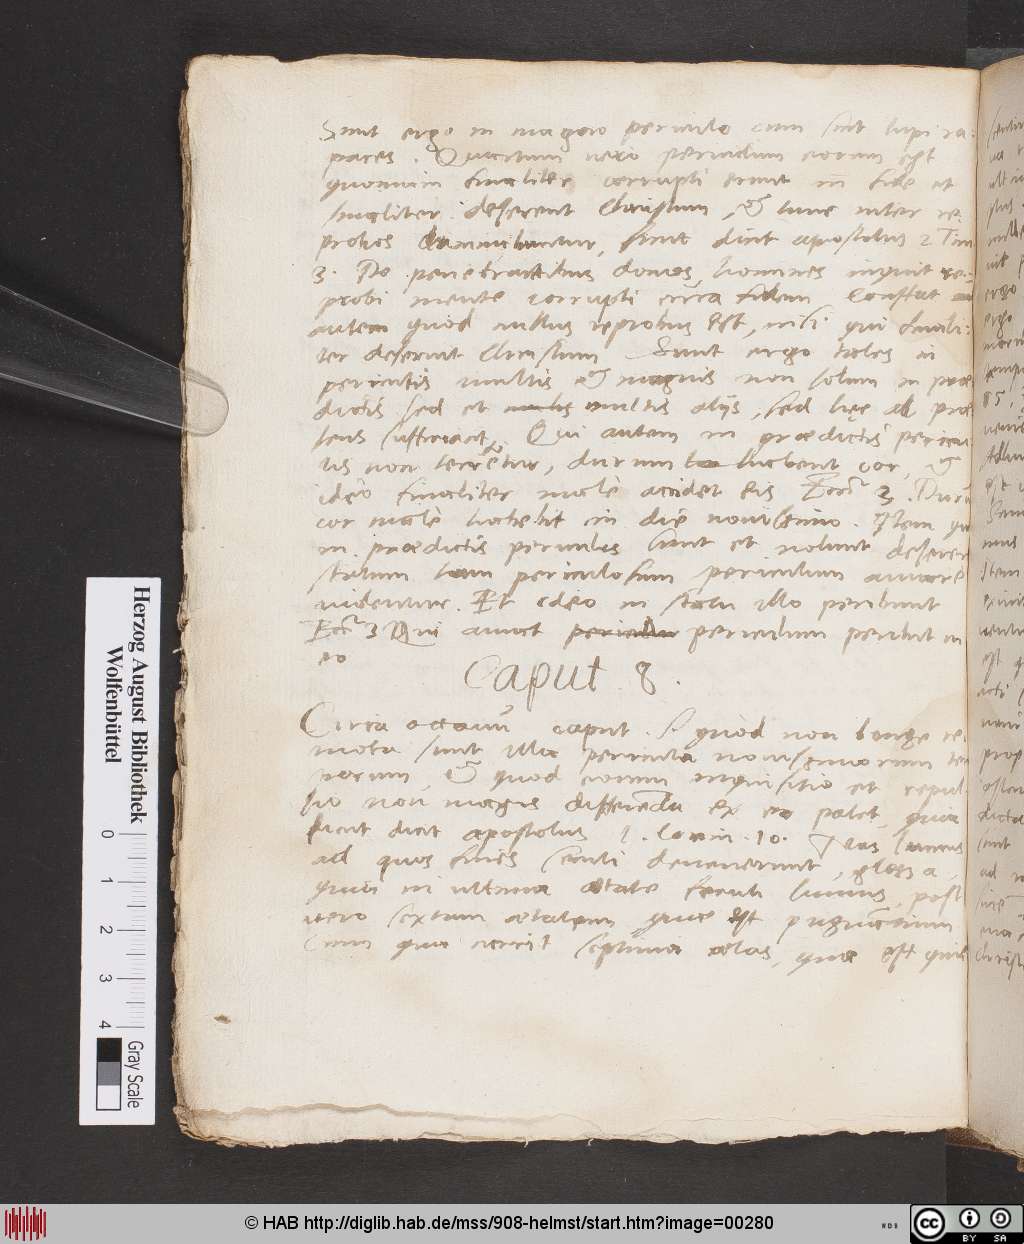 Sunt ergo in magno periculo cum sint lupi ra-
paces. Quartum vero periculum eorum est
quoniam finaliter corrupti erunt in fide et
finaliter deserent Christum, & tunc inter re-
probos, sicut dicit apostolus 2 Tim
3. De penetrantibus domos, homines inquit re-
probi mente corrupti circa fidem, Constat
autem quod nullus reprobus est, nisi qui finali-
ter deseruit Christum Sunt ergo tales in
periculis multis & magnis non solum in prae
dictis sed et multis aliis, sed hęc ad prae
sens sufficiant. Qui autem in prædictis pericu
lis non terretur, durum habent cor, &
ideo finaliter malè accidet eis Eccl 3. Durū
cor malè habebit in die novissimo. Item qui
in prædictis periculis sunt et nolunt deserere
statum tam periculosum periculum amare
videntur. Et ideo in statu illo peribunt
Eccl 3 Qui amat periculum peribit in
eo
Caput 8.
Circa octavū caput. s. quod non longe re-
mota sunt illa pericula novissimorum tem
porum, & quod eorum inquisitio et repul-
sio non magis differenda ex eo patet, quia
sicut dicit apostolus 1. Corin. 10. Nos sumus
ad quos fines seculi devenerunt, glosa,
quia in ultima ætate seculi sumus, post
vero sextam ætatem, quæ est pugnātium
cum qua currit septima ætas, quæ est quie
Herzog August Bibliothek
Wolfenbüttel
0 1 2 3 4
Gray Scale
© HAB http://diglib.hab.de/mss/908-helmst/start.htm?image=00280
WDB
cc BY SA